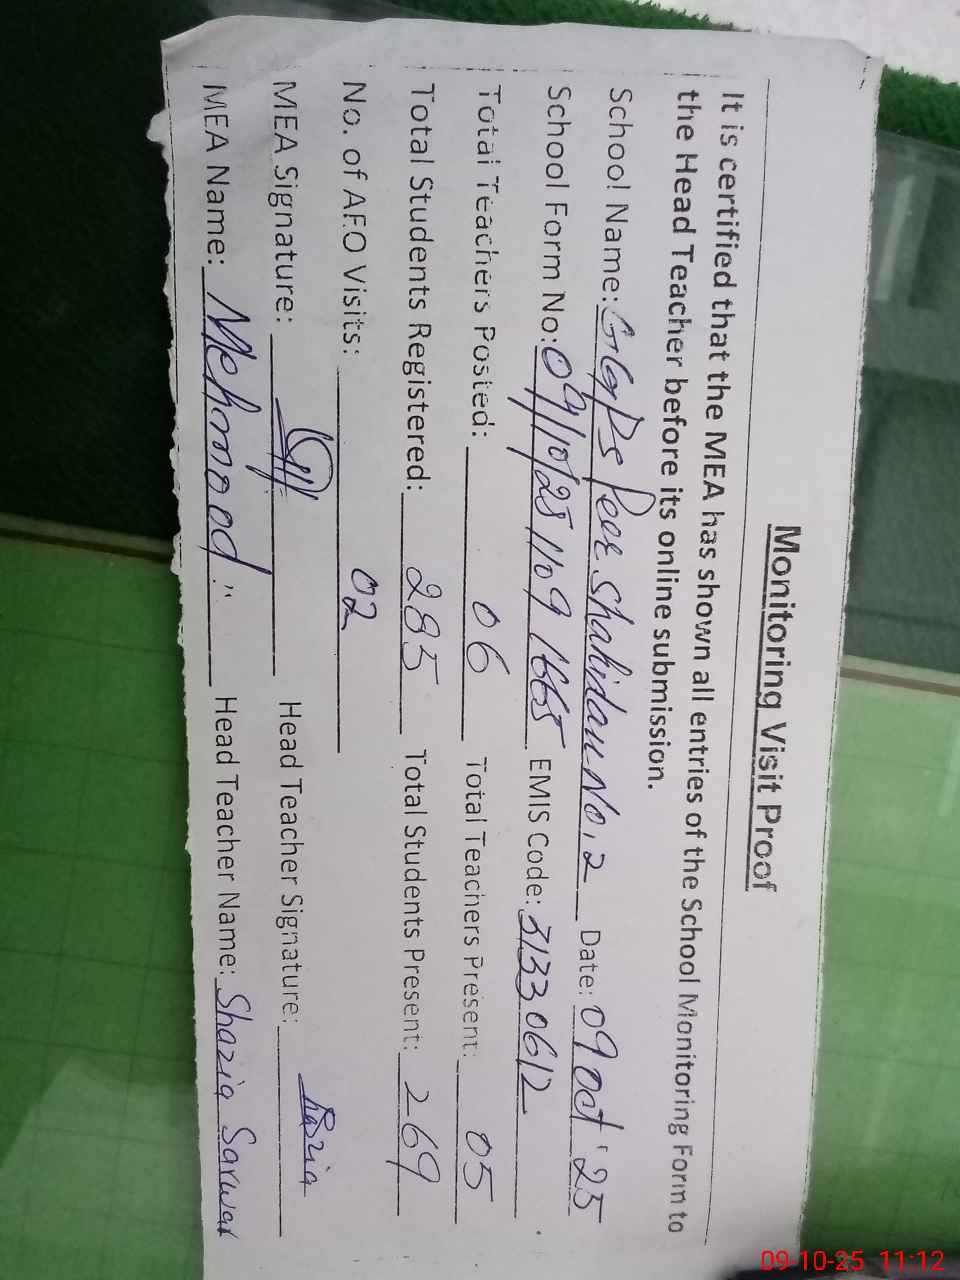 Monitoring Visit Proof
It is certified that the MEA has shown all entries of the School Monitoring Form to
the Head Teacher before its online submission.
School Name: GGPS Peer Shahidan No, 2 Date: 09 Oct '25
School Form No: 09/10/25 1109 1665 EMIS Code: 31330612
Total Teachers Posted: 06 Total Teachers Present: 05
Total Students Registered: 285 Total Students Present: 269
No. of AEO Visits: 02
MEA Signature: Head Teacher Signature: Shazia
MEA Name: Mehmood Head Teacher Name: Shazia Sarwar
09-10-25 11:12